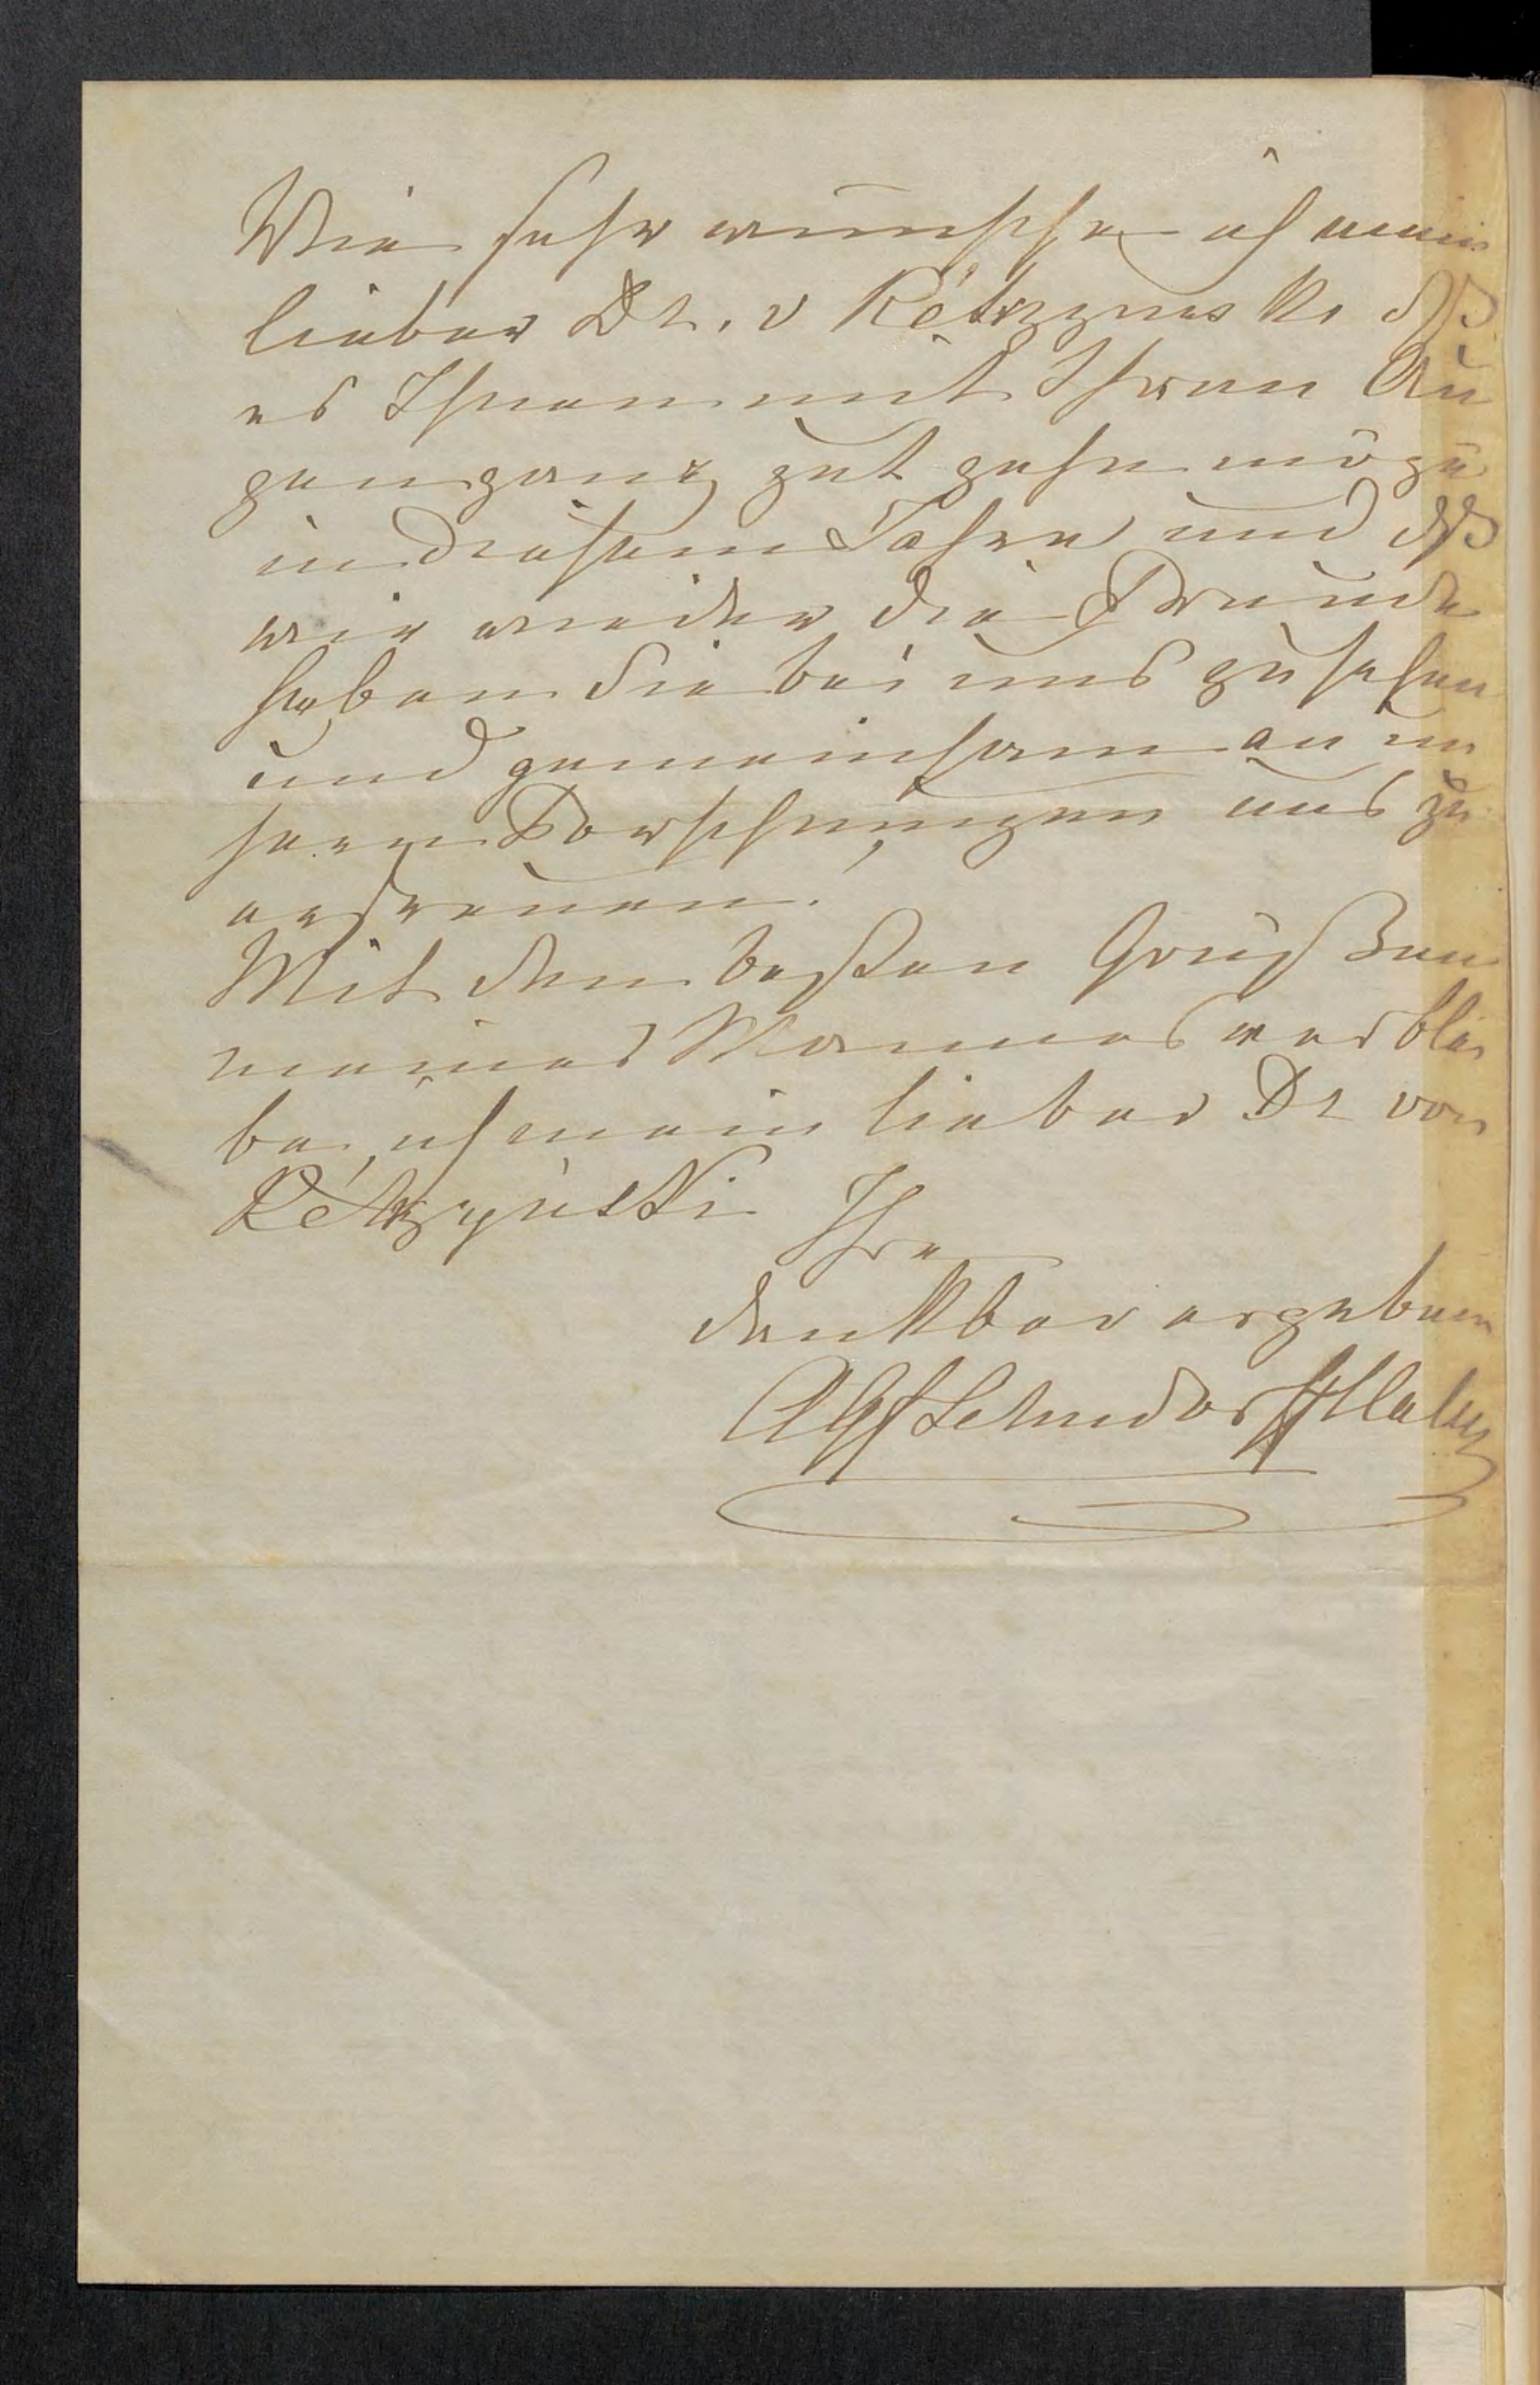 Wie sehr wünsche ich mein
lieber Dr. v Kętrzynski dß
es Ihnen mit Ihren Au
gen ganz gut gehen möge
in diesem Jahre und dß
wir wieder die Freude
haben Sie bei uns zu sehen
und gemeinsam an un
seren Forschungen uns zu
erfreuen!
Mit den besten Grüßen
meines Mannes verblei
be ich mein lieber Dr von
Kętrzyński Ihre
dankbar ergebene
Lehndorff